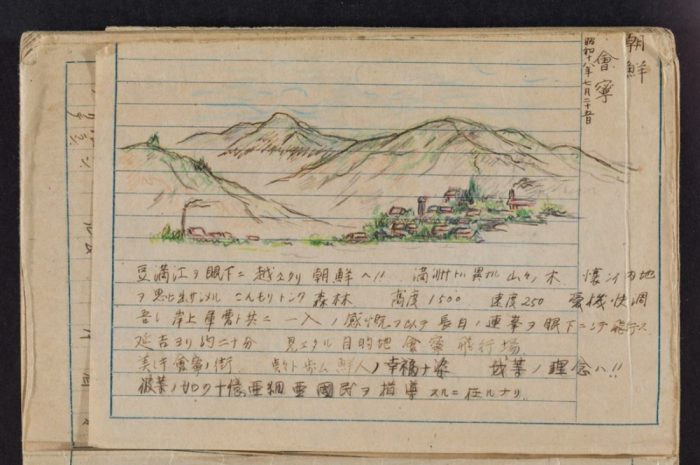 朝鮮
會寧
昭和十八年七月二十五日
豆満江ヲ眼下ニ越エタリ 朝鮮ヘ!! 満洲 異ル山々ノ木 懐シイ内地
ヲ思ヒ出サシメル こんもりトシタ 森林 高度1500 速度250 愛機快調
吾レ岸上軍曹ト共ニ一入ノ感慨ヲコメテ長白ノ連峯ヲ眼下ニシテ飛行ス
延吉ヨリ約二十分 見エタル目的地會寧飛行場
美シキ會寧ノ街 歩ム鮮人ノ幸福ナ姿 我等ノ理念ハ!!
彼等ノ如ク十億亜細亜國民ヲ指導スルニ在ルナリ